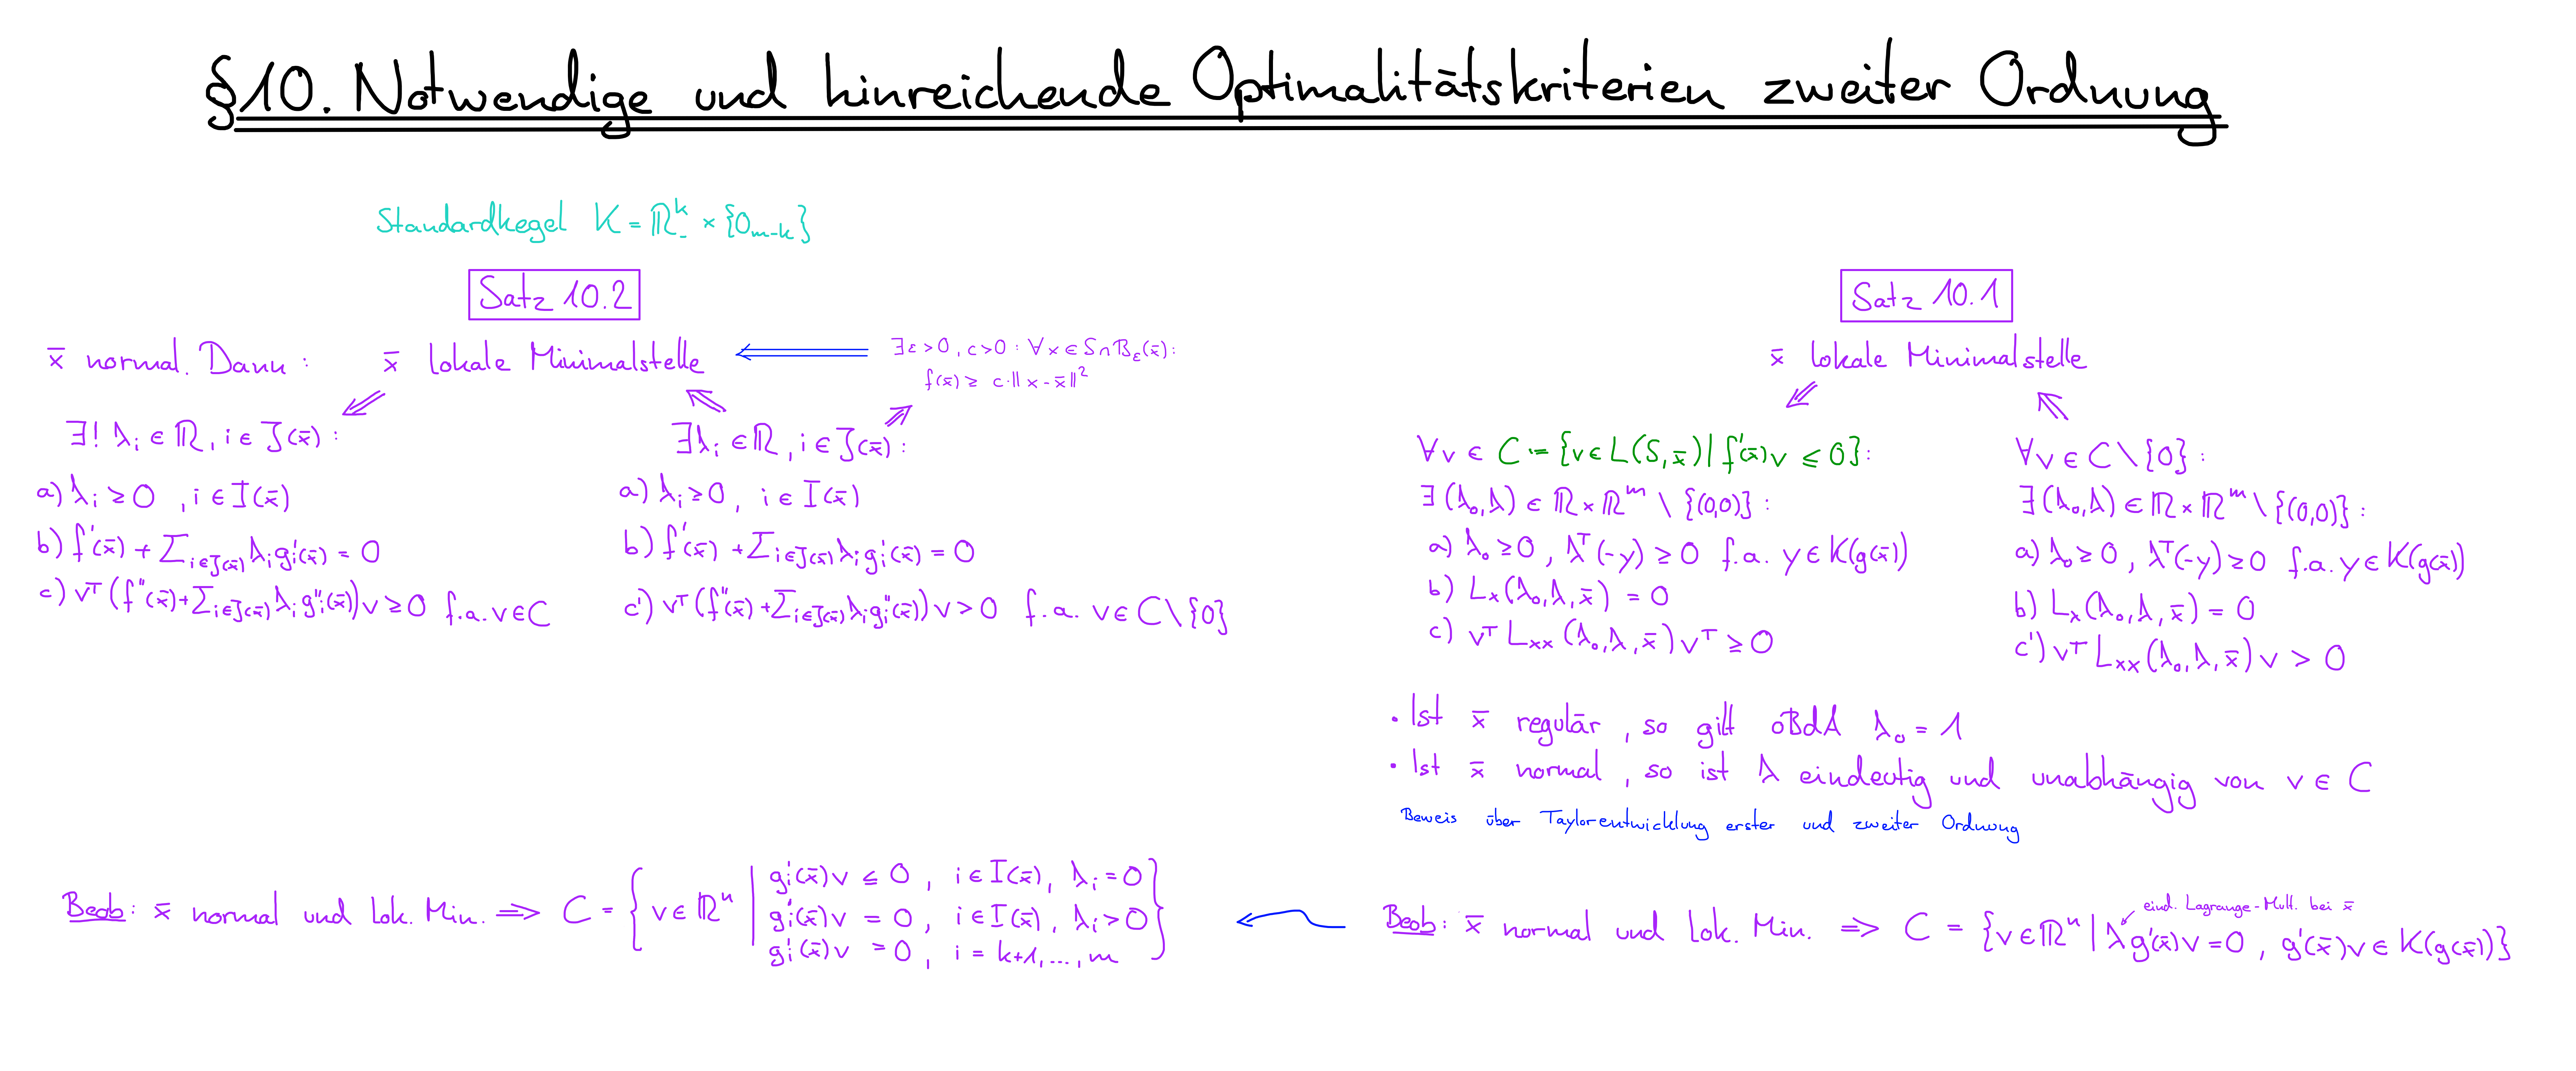 §10. Notwendige und hinreichende Optimalitätskriterien zweiter Ordnung
Standardkegel K = ℝ₋ᵏ × {0ₘ₋ₖ}
Satz 10.2
x̄ normal. Dann : x̄ lokale Minimalstelle ⟸ ∃ε>0, c>0 : ∀x∈S∩B_ε(x̄):
f(x̄) ≥ c·‖x-x̄‖²
∃! λᵢ ∈ ℝ, i ∈ J(x̄) :
a) λᵢ ≥ 0 , i ∈ I(x̄)
b) f'(x̄) + Σ_{i∈J(x̄)} λᵢ gᵢ'(x̄) = 0
c) vᵀ(f''(x̄) + Σ_{i∈J(x̄)} λᵢ gᵢ''(x̄))v ≥ 0 f.a. v∈C
∃λᵢ ∈ ℝ, i ∈ J(x̄) :
a) λᵢ ≥ 0, i ∈ I(x̄)
b) f'(x̄) + Σ_{i∈J(x̄)} λᵢ gᵢ'(x̄) = 0
c') vᵀ(f''(x̄) + Σ_{i∈J(x̄)} λᵢ gᵢ''(x̄))v > 0 f.a. v ∈ C\{0}
Satz 10.1
x̄ lokale Minimalstelle
∀v ∈ C := {v ∈ L(S,x̄) | f'(x̄)v ≤ 0}:
∃(λ₀,λ) ∈ ℝ×ℝᵐ \ {(0,0)} :
a) λ₀ ≥ 0, λᵀ(-y) ≥ 0 f.a. y ∈ K(g(x̄))
b) Lₓ(λ₀,λ,x̄) = 0
c) vᵀ Lₓₓ(λ₀,λ,x̄) vᵀ ≥ 0
∀v ∈ C\{0} :
∃(λ₀,λ) ∈ ℝ×ℝᵐ \ {(0,0)} :
a) λ₀ ≥ 0, λᵀ(-y) ≥ 0 f.a. y ∈ K(g(x̄))
b) Lₓ(λ₀,λ,x̄) = 0
c') vᵀ Lₓₓ(λ₀,λ,x̄) v > 0
• Ist x̄ regulär, so gilt oBdA λ₀ = 1
• Ist x̄ normal, so ist λ eindeutig und unabhängig von v ∈ C
Beweis über Taylorentwicklung erster und zweiter Ordnung
Beob: x̄ normal und Lok. Min. ⟹ C = { v ∈ ℝⁿ |
gᵢ'(x̄)v ≤ 0, i ∈ I(x̄), λᵢ = 0
gᵢ'(x̄)v = 0, i ∈ I(x̄), λᵢ > 0
gᵢ'(x̄)v = 0, i = k+1,...,m }
eind. Lagrange-Mult. bei x̄
Beob: x̄ normal und Lok. Min. ⟹ C = {v ∈ ℝⁿ | λg'(x̄)v = 0, g'(x̄)v ∈ K(g(x̄))}